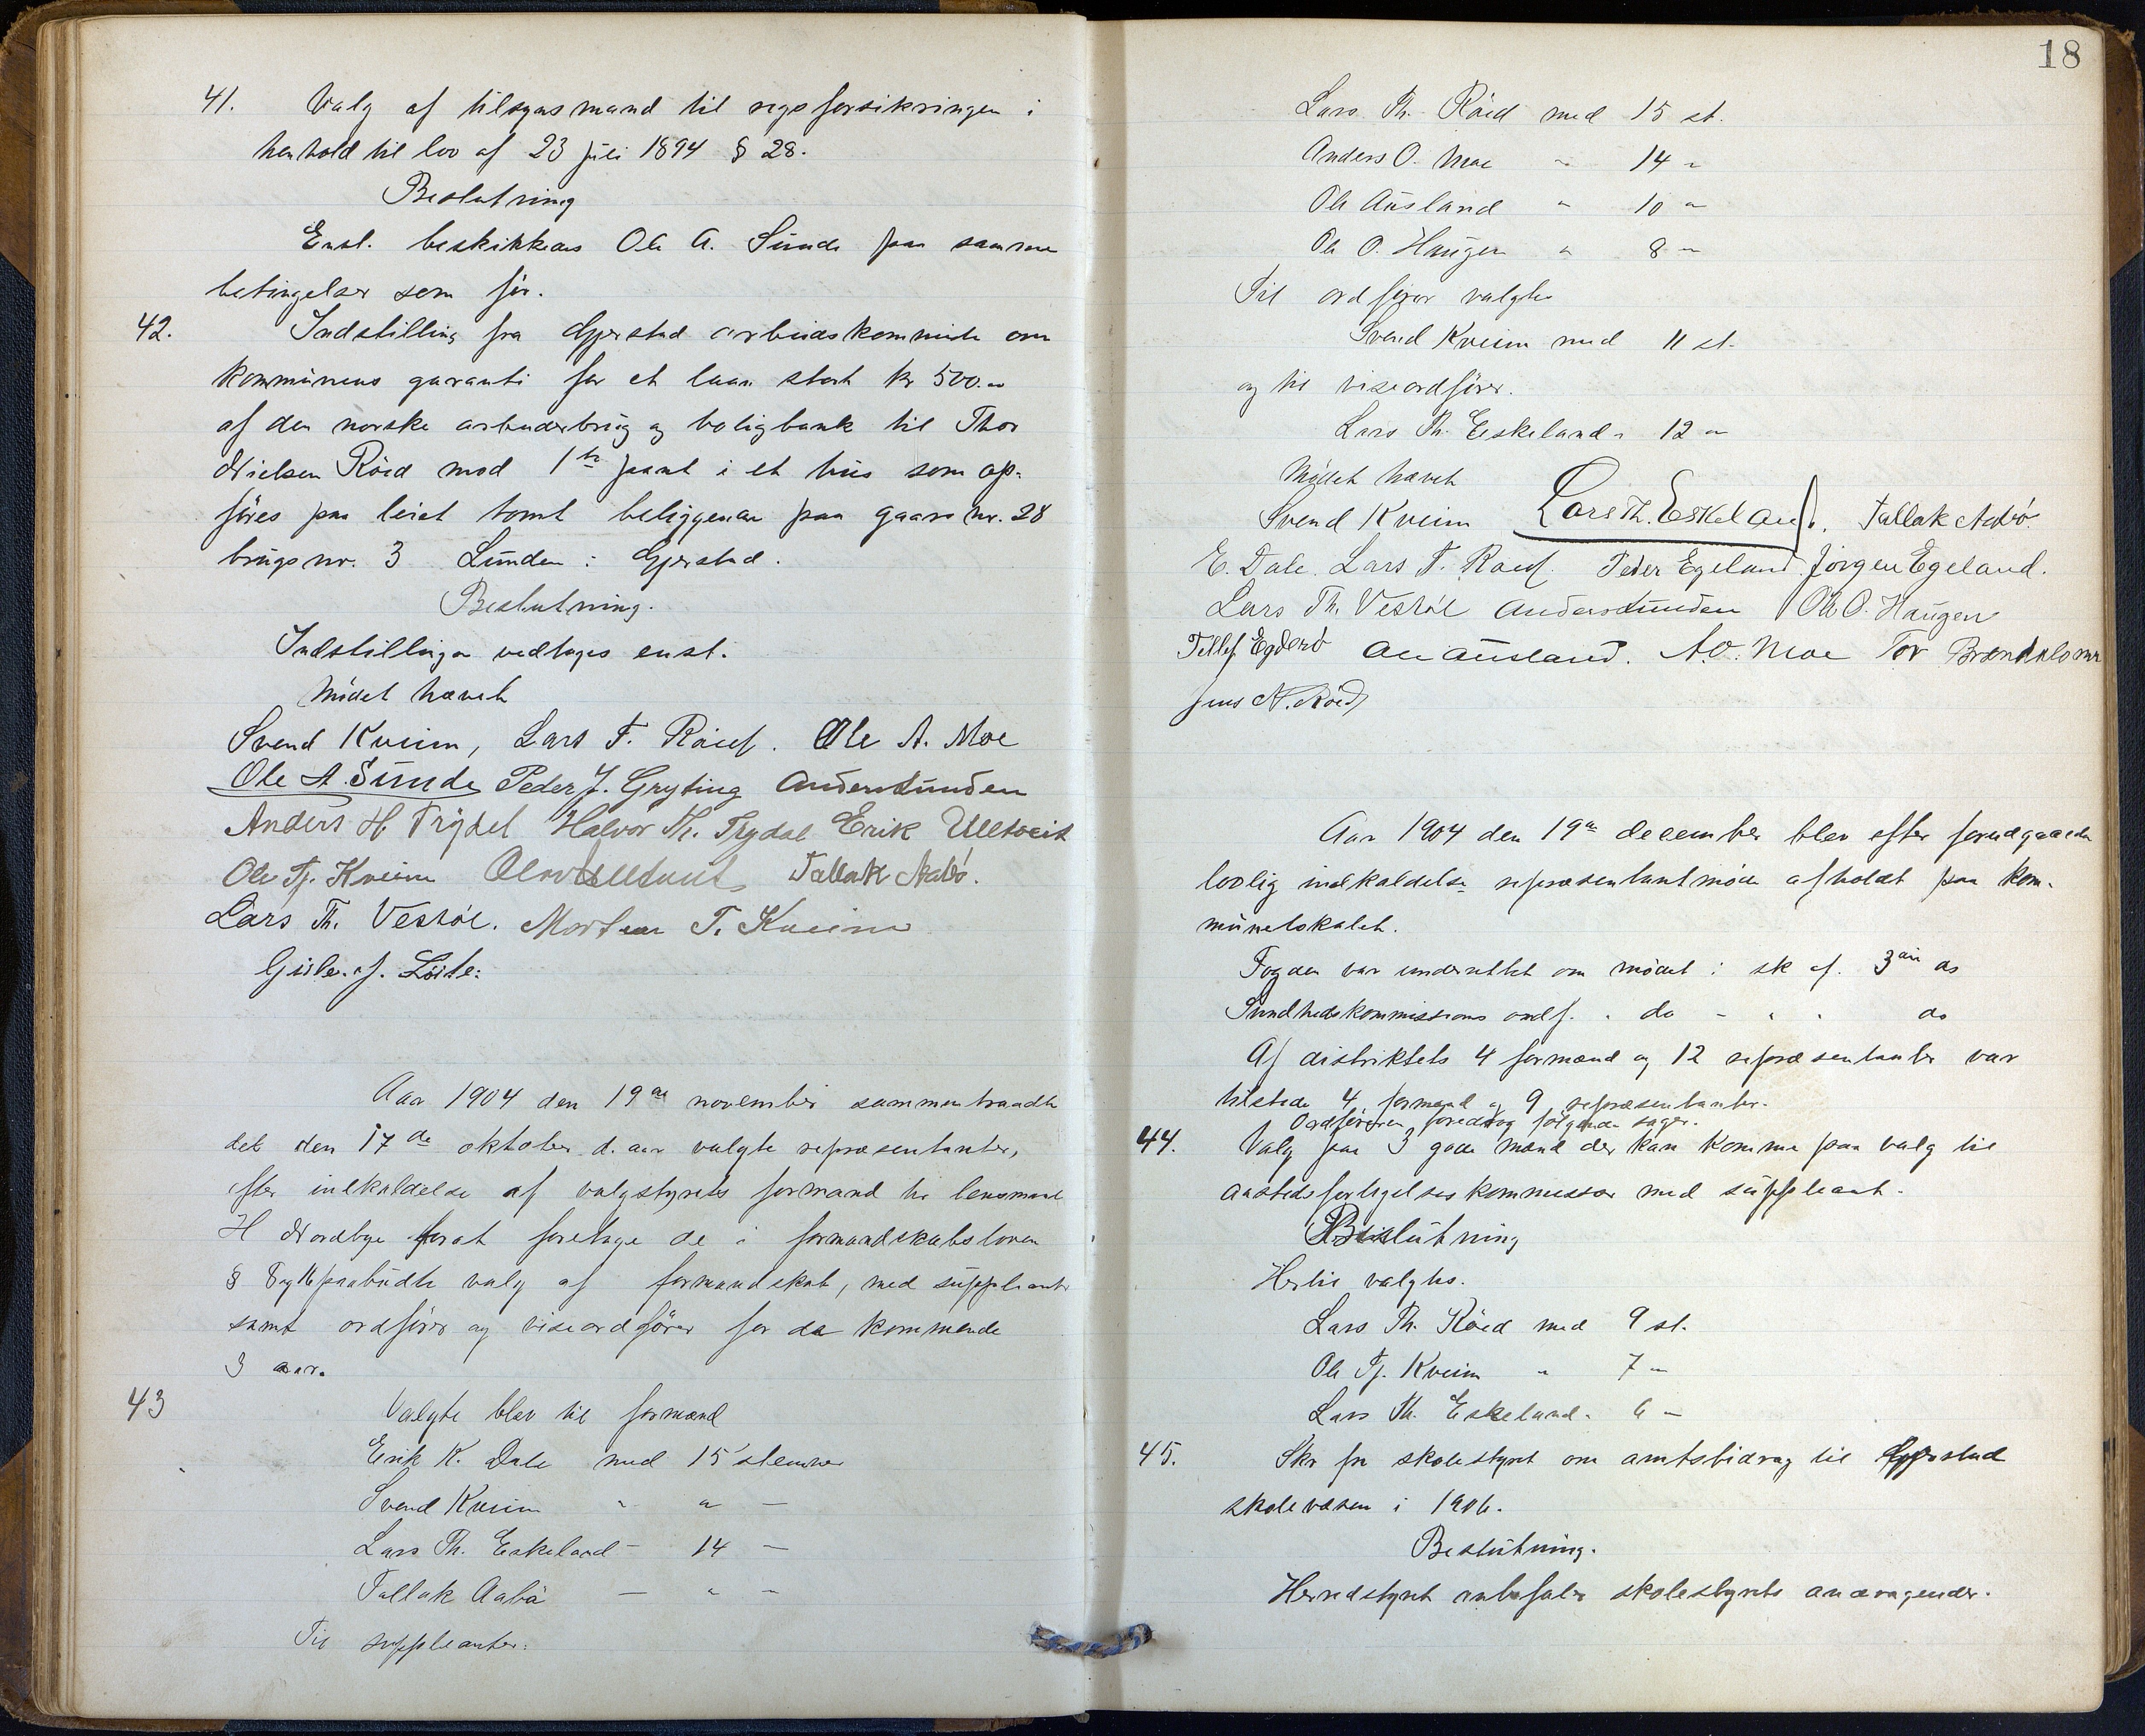 41. Valg af tilsynsmand til rigsforsikringen i
henhold til lov af 23 juli 1894 § 28.
Beslutning
Enst. beskikkedes Ole A. Sunde paa samme
betingelser som før.
42. Indstilling fra Gjerstad arbeiderkommite om
kommunens garanti for et laan stort kr 500.00
af den norske arbeiderbrug og boligbank til Thor
Nielsen Röed mod 1ste pant i et hus som op-
föres paa leiet tomt beliggende paa gaards nr. 28
brugsnr. 3 Lunden i Gjerstad.
Beslutning.
Indstillingen vedtages enst.
Mödet hævet
Svend Kveim, Lars T. Röed. Ole A. Moe
Ole A. Sunde Peder J. Gryting Anders Lunden
Anders H. Trydal Halvor Th. Trydal Erik Ulltveit
Ole Tj. Kveim Olav Ulltveit Tallak Aabö.
Lars Th. Vestöl. Morten T. Kveim
Gisle. J. Löite:
Aar 1904 den 19de november sammentraadte
det den 17de oktober d. aar valgte repræsentanter,
efter indkaldelse af valgstyrets formand hr lensmand
H Nordbye forat foretage de i formandskabsloven
§ 8 og 16 paabudte valg af formandskab, med suppleanter
samt ordförer og viseordförer for de kommende
3 aar.
43 Valgte blev til formænd
Erik K. Dale med 15 stemmer
Svend Kveim " " —
Lars Th. Eskeland — 14 —
Tallak Aabö — " —
Til suppleanter:
18
Lars Th. Röed med 15 st.
Anders O. Moe " 14 "
Ole Ausland " 10 "
Ole O. Haugen " 8 "
Til ordförer valgtes
Svend Kveim med 11 st.
og til viseordförer.
Lars Th. Eskeland " 12 "
Mödet hævet
Svend Kveim Lars Th. Eskeland. Tallak Aabö.
E. Dale. Lars T. Röed. Peder Egeland. Jörgen Egeland.
Lars Th. Vestöl Anders Lunden Ole O. Haugen
Tellef Egderö Ausland. A.O. Moe Tov Brændalsmo
Jens N. Röed
Aar 1904 den 19de december blev efter forudgaaende
lovlig indkaldelse repræsentantmöde afholdt paa kom-
munelokalet.
Fogden var underrettet om mödet i sk af 3die ds
Sundhedskommissions ordf. " do - " " ds
Af distriktets 4 formænd og 12 repræsentanter var
tilstede 4 formænd og 9 repræsentanter.
Ordföreren foredrog fölgende sager.
44. Valg paa 3 gode mænd der kan komme paa valg til
aastedsforligelseskommissær med suppleant.
Beslutning
Hertil valgtes.
Lars Th. Röed med 9 st.
Ole Tj. Kveim " 7 "
Lars Th. Eskeland " 6 —
45. Skr fra skolestyret om amtsbidrag til Gjerstad
skolevæsen i 1906.
Beslutning.
Herredstyret anbefaler skolestyrets andragender.